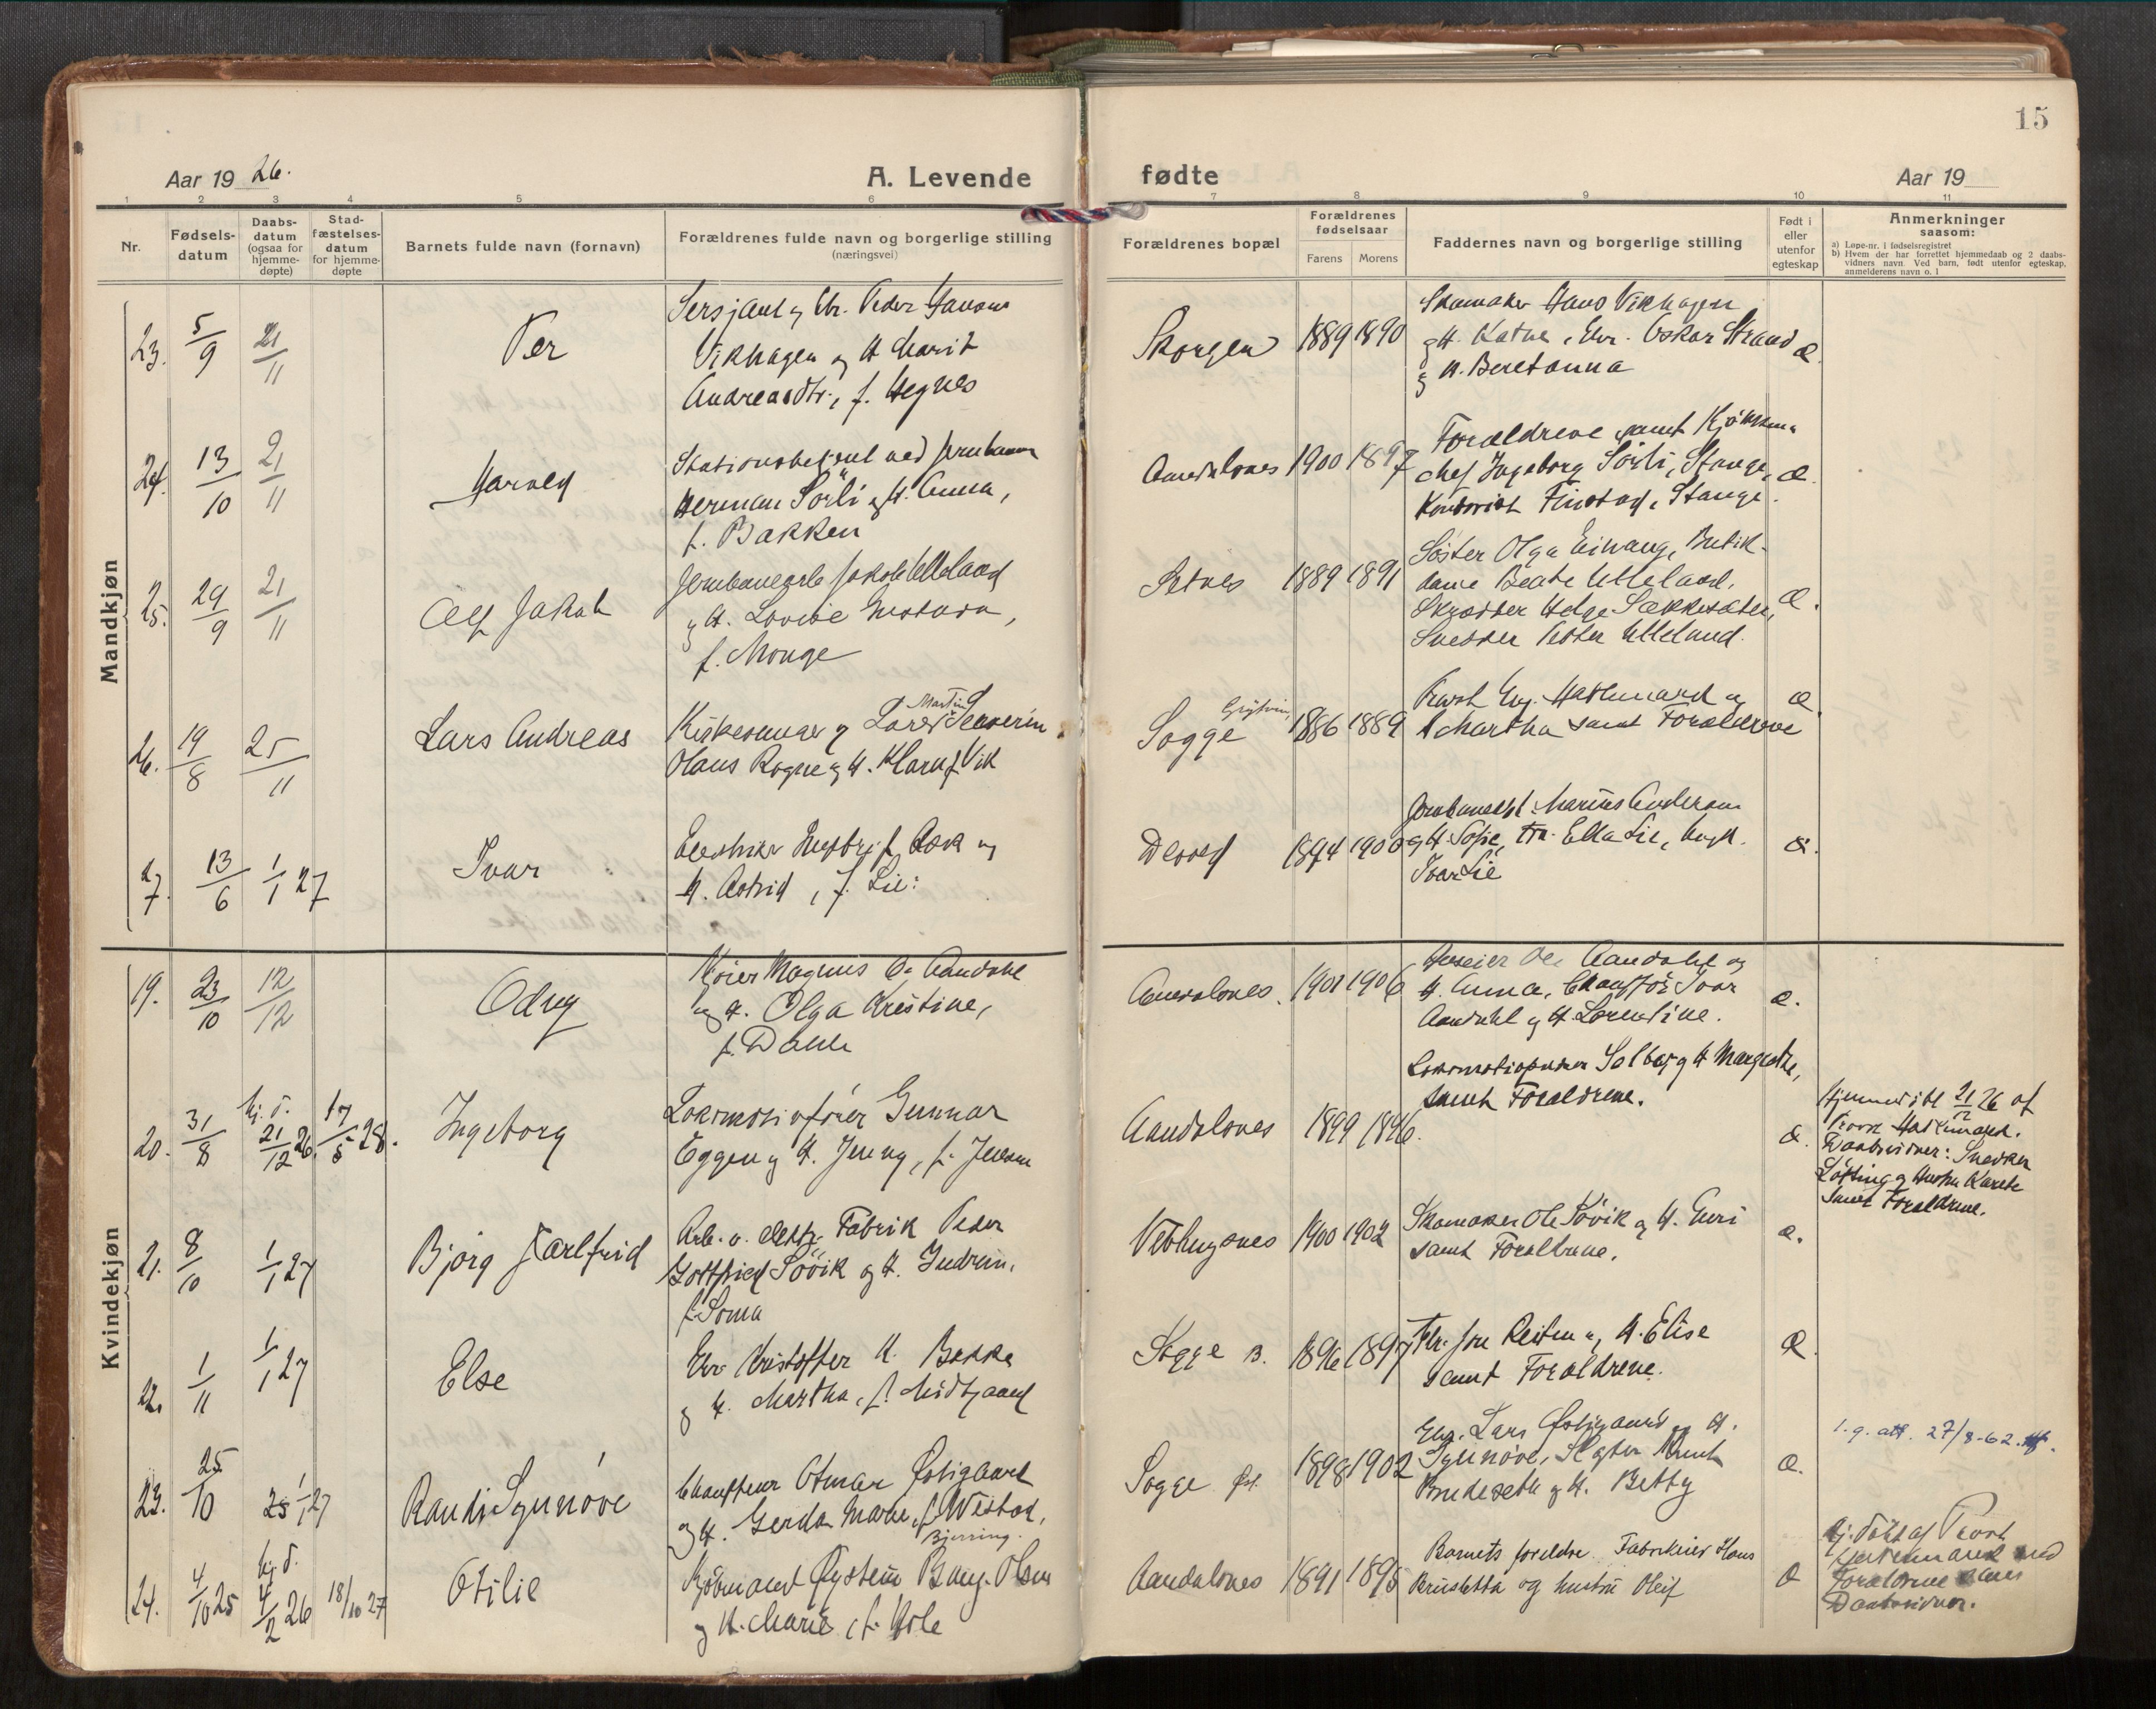 15
Aar 1926.
A. Levende
fødte
Aar 19
1 2 3 4 5 6 7 8 9 10 11
Nr.
Fødsels-
datum
Daabs-
datum
(ogsaa for
hjemme-
døpte)
Stad-
fæstelses-
datum
for hjemme-
døpte
Barnets fulde navn (fornavn)
Forældrenes fulde navn og borgerlige stilling
(næringsvei)
Forældrenes bopæl
Forældrenes
fødselsaar
Farens Morens
Faddernes navn og borgerlige stilling
Født i
eller
utenfor
egteskap
Anmerkninger
saasom:
a) Løpe-nr. i fødselsregistret
b) Hvem der har forrettet hjemmedaab og 2 daabs-
vidners navn. Ved barn, født utenfor egteskap,
anmelderens navn o. l
Mandkjøn
23. 5/9 21/11 Per
Sersjant og Gbr. Peder
Vikhagen og H. Marit
Andreasdtr., f. Hegnes
Skorgen 1889 1890
Skomaker Hans Vikhagen
og H. , Gbr. Oskar Strand
og H. Beretanna
æ.
24. 13/10 21/11
Stationsbetjent ved Jernbanen
Herman Sörli og H. Anna,
f. Bakken
Aandalsnes 1900 1897
Forældrene samt
Ingeborg Sörli, Stange,
Kontorist Finstad, Stange.
æ.
25. 29/9 21/11 Alf Jakob
Jernbanearb. Jakob Ulleland
og H. Lovise ,
f. Monge
Setnes 1889 1891
Söster Olga , Butik-
dame Beate Ulleland,
Skrædder Helge ,
Snedker Ulleland.
æ.
26. 19/8 25/11 Lars Andreas
Martin
Kirkesanger Lars Severin
Olaus Rogne og H. Klara f. Vik
Sogge Grytten 1886 1889
Provst Hattemand og
H. Martha samt Forældrene
æ
27. 13/6 1/1 27 Ivar
Elektriker Aak og
H. Astrid, f. Lie.
1894 1900
Marius Andersen
og H. Sofie, Frk. Ella Lie,
Ivar Lie
æ.
Kvindekjøn
19. 23/10 12/12 Odny
Kjører Magnus O. Aandahl
og H. Olga Kristine,
f. Dahle
Aandalsnes. 1901 1906
Huseier Ole Aandahl og
H. Anna, Chauffør Ivar
Aandahl og H. Lorentine.
æ.
20. 31/8 hj. d. 21/12 26. 17/5 28. Ingeborg
Lokomotivfører Gunnar
Eggen og H. Jenny, f. Jensen
Aandalsnes 1899 1896.
Solberg og H. Margrethe,
samt Forældrene.
æ.
Hjemmedøbt 21/12 26 af
Provst Hattemand.
Daabsvidner: Snedker
og Hustru Karete
samt Forældrene.
21. 8/10 1/1 27 Bjørg Jarlfrid
Arb. v. elektr. Fabrik Peder
Gottfried Sövik og H. Gudrun,
f. Soma
Veblungsnes 1900 1902
Skomaker Ole Sövik og H. Guri
samt Forældrene.
æ.
22. 1/11 1/1 27 Else
Gbr. Kristoffer H. Bakke
og H. Martha, f. Midtgaard
Sogge B. 1896 1897
Gbr. Jon Reiten og H. Elise
samt Forældrene.
æ.
23. 25/10 1/1 27 Randi Synnøve
Chauffeur Otmar Østigaard
og H. Gerda Marie, f. Westad,
Bjerring.
Sogge Øst. 1898 1902
Gbr. Lars Østigaard og H.
Synnøve, Knut
Brudeseth og H. Betty
æ.
1.g. att. 27/8-62.
24. 4/10 25 hj. d. 4/2 26 18/10 27 Otilie
Kjøbmand Øystein Bang-Olsen
og H. Marie, f. Hole
Aandalsnes 1891 1895
Barnets foreldre Fabrikeier Hans
Brusletta og hustru
æ
hj. døbt af Provst
Hattemand med
Forældrene som
Daabsvidner.